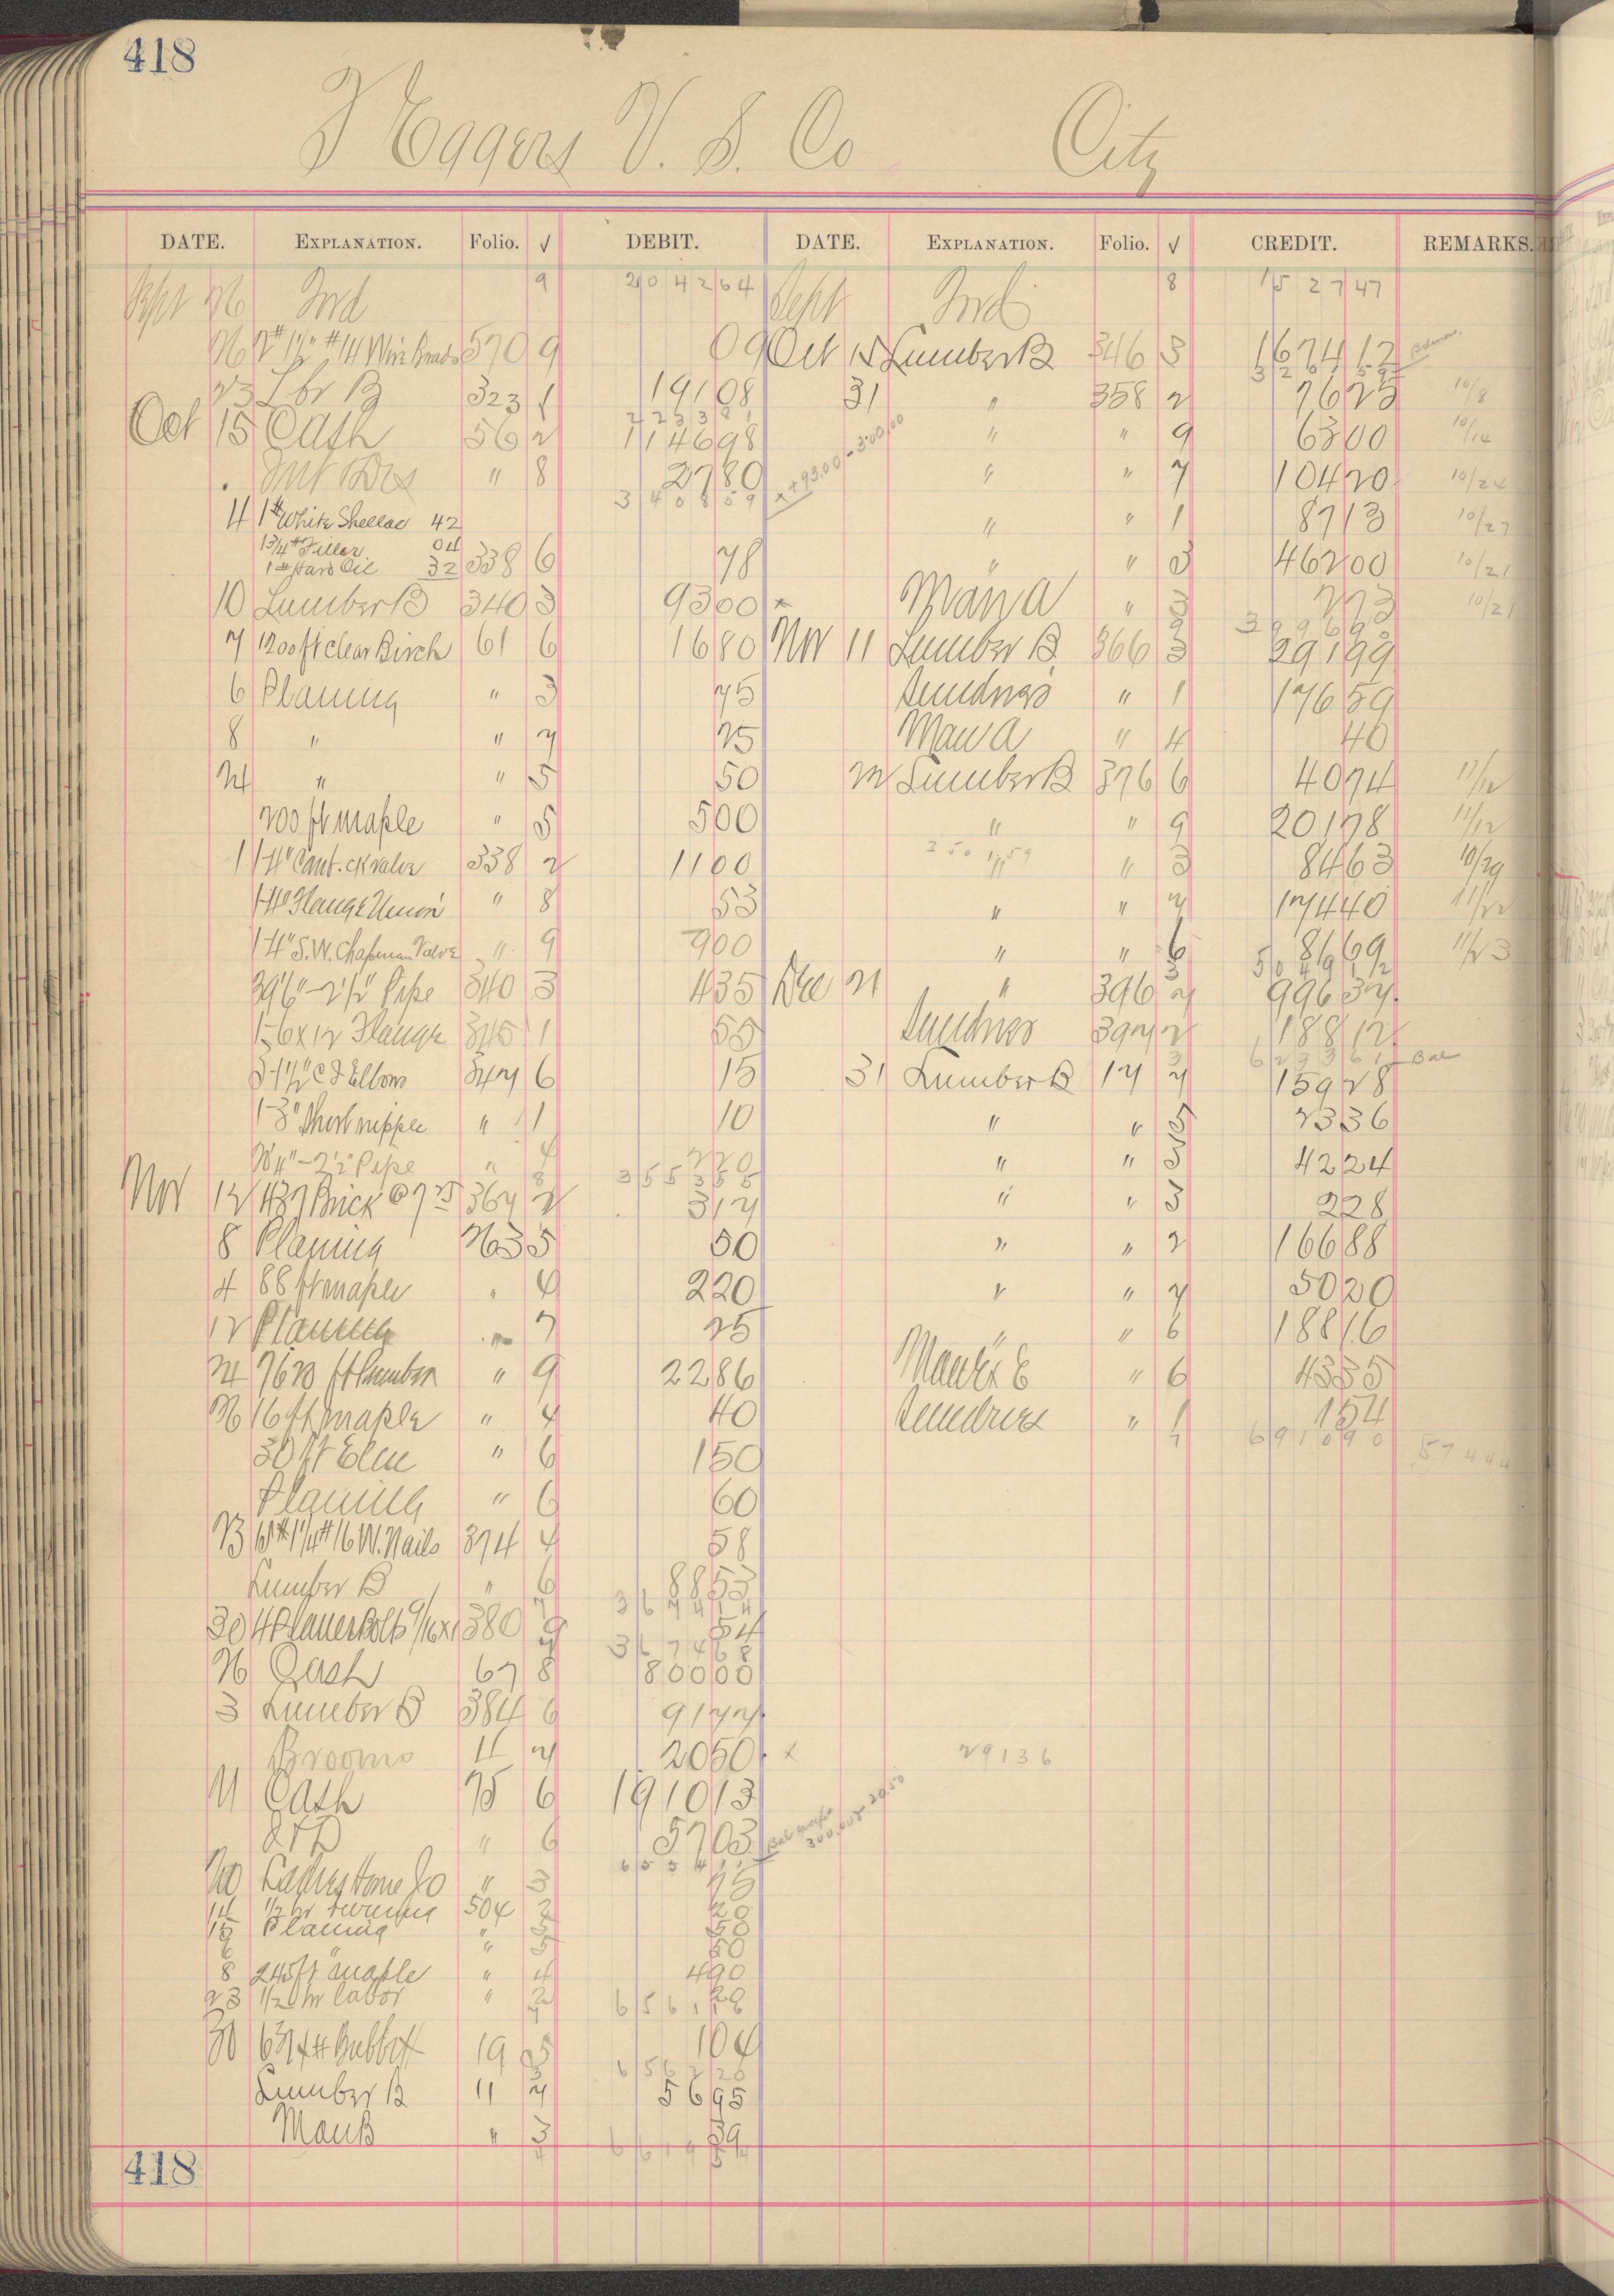 418
F Eggers V. S. Co City
DATE. EXPLANATION. Folio. √ DEBIT. DATE. EXPLANATION. Folio. √ CREDIT. REMARKS.
Sept 26 Fwd 9 2042 64 Sept Fwd 8 1527 47
26 2# 1½" #14 Wire Brads 570 9 09 Oct 15 Lumber B 346 3 1674 12
3201 59
23 Lbr B 323 1 191 08 31 " 358 2 76 25 10/8
2233 81
Oct 15 Cash 56 2 1146 98 " " 9 63 00 10/14
" 8 27 80 " " 7 104 20 10/24
3408 59 x + 93.00 - 300.00
4 1# White Shellac 42 " " 1 87 13 10/27
1 3/4# Filler 04
1# Hard Oil 32 338 6 78 " " 3 462 00 10/21
10 Lumber B 340 3 93 00 x Man A " 3 2 73 10/21
7 1200 ft clear Birch 61 6 16 80 Nov 11 Lumber B 366 3 291 99
6 Planing " 3 75 Sundries " 1 176 59
8 " " 7 25 Man A " 4 40
24 " " 5 50 22 Lumber B 376 6 40 74 11/12
200 ft maple " 5 5 00 " " 9 201 78 11/12
350 1 59
1 1-4" Comb. ck valve 338 2 11 00 " " 3 84 63 10/29
1-4" Flange Union " 8 53 " " 7 174 40 11/22
1-4" S.W. Chapman Valve " 9 9 00 " " 6 81 69 11/23
5049 12
39'6" - 2½" Pipe 340 3 4 35 Dec 21 " 396 7 996 37
1-6x12 Flange 345 1 55 Sundries 397 2 188 12
6233 61 Bal
3-1½" C I Elbows 347 6 15 31 Lumber B 17 7 159 28
1-3" Short nipple " 1 10 " " 5 23 36
20'4" - 2½" Pipe " 4 2 20 " " 3 42 24
3553 55
Nov 12 437 Brick @ 7 25 367 2 3 17 " " 3 2 28
8 Planing 263 5 50 " " 2 166 88
4 88 ft maple " 4 2 20 " " 7 50 20
12 Planing " 7 25 " " 6 188 16
24 7620 ft Lumber " 9 22 86 " 6 43 35
26 16 ft maple " 4 40 Sundries " 1 1 54
6910 90 574 44
30 ft Elm " 6 1 50
Planing " 6 60
23 1¼" #16 W. Nails 374 4 58
Lumber B " 6 88 53
3674 14
30 4 Planer Bolts 9/16x1 380 9 54
3674 68
26 Cash 67 8 800 00
3 Lumber B 384 6 91 77
Brooms 11 7 20 50 x 291 36
21 Cash 75 6 1910 13
" 6 57 03 300.00 20.50
6554 11
20 Ladies Home Jo " 3 75
14 1/2 hr turning 504 2 20
15 Planing " 5 50
6 " " 5 50
8 245 ft maple " 4 4 90
23 1/2 hr labor " 2 20
6561 16
30 Babbitt 19 5 1 04
6562 20
Lumber B 11 7 56 95
Man B " 3 39
6619 54
418